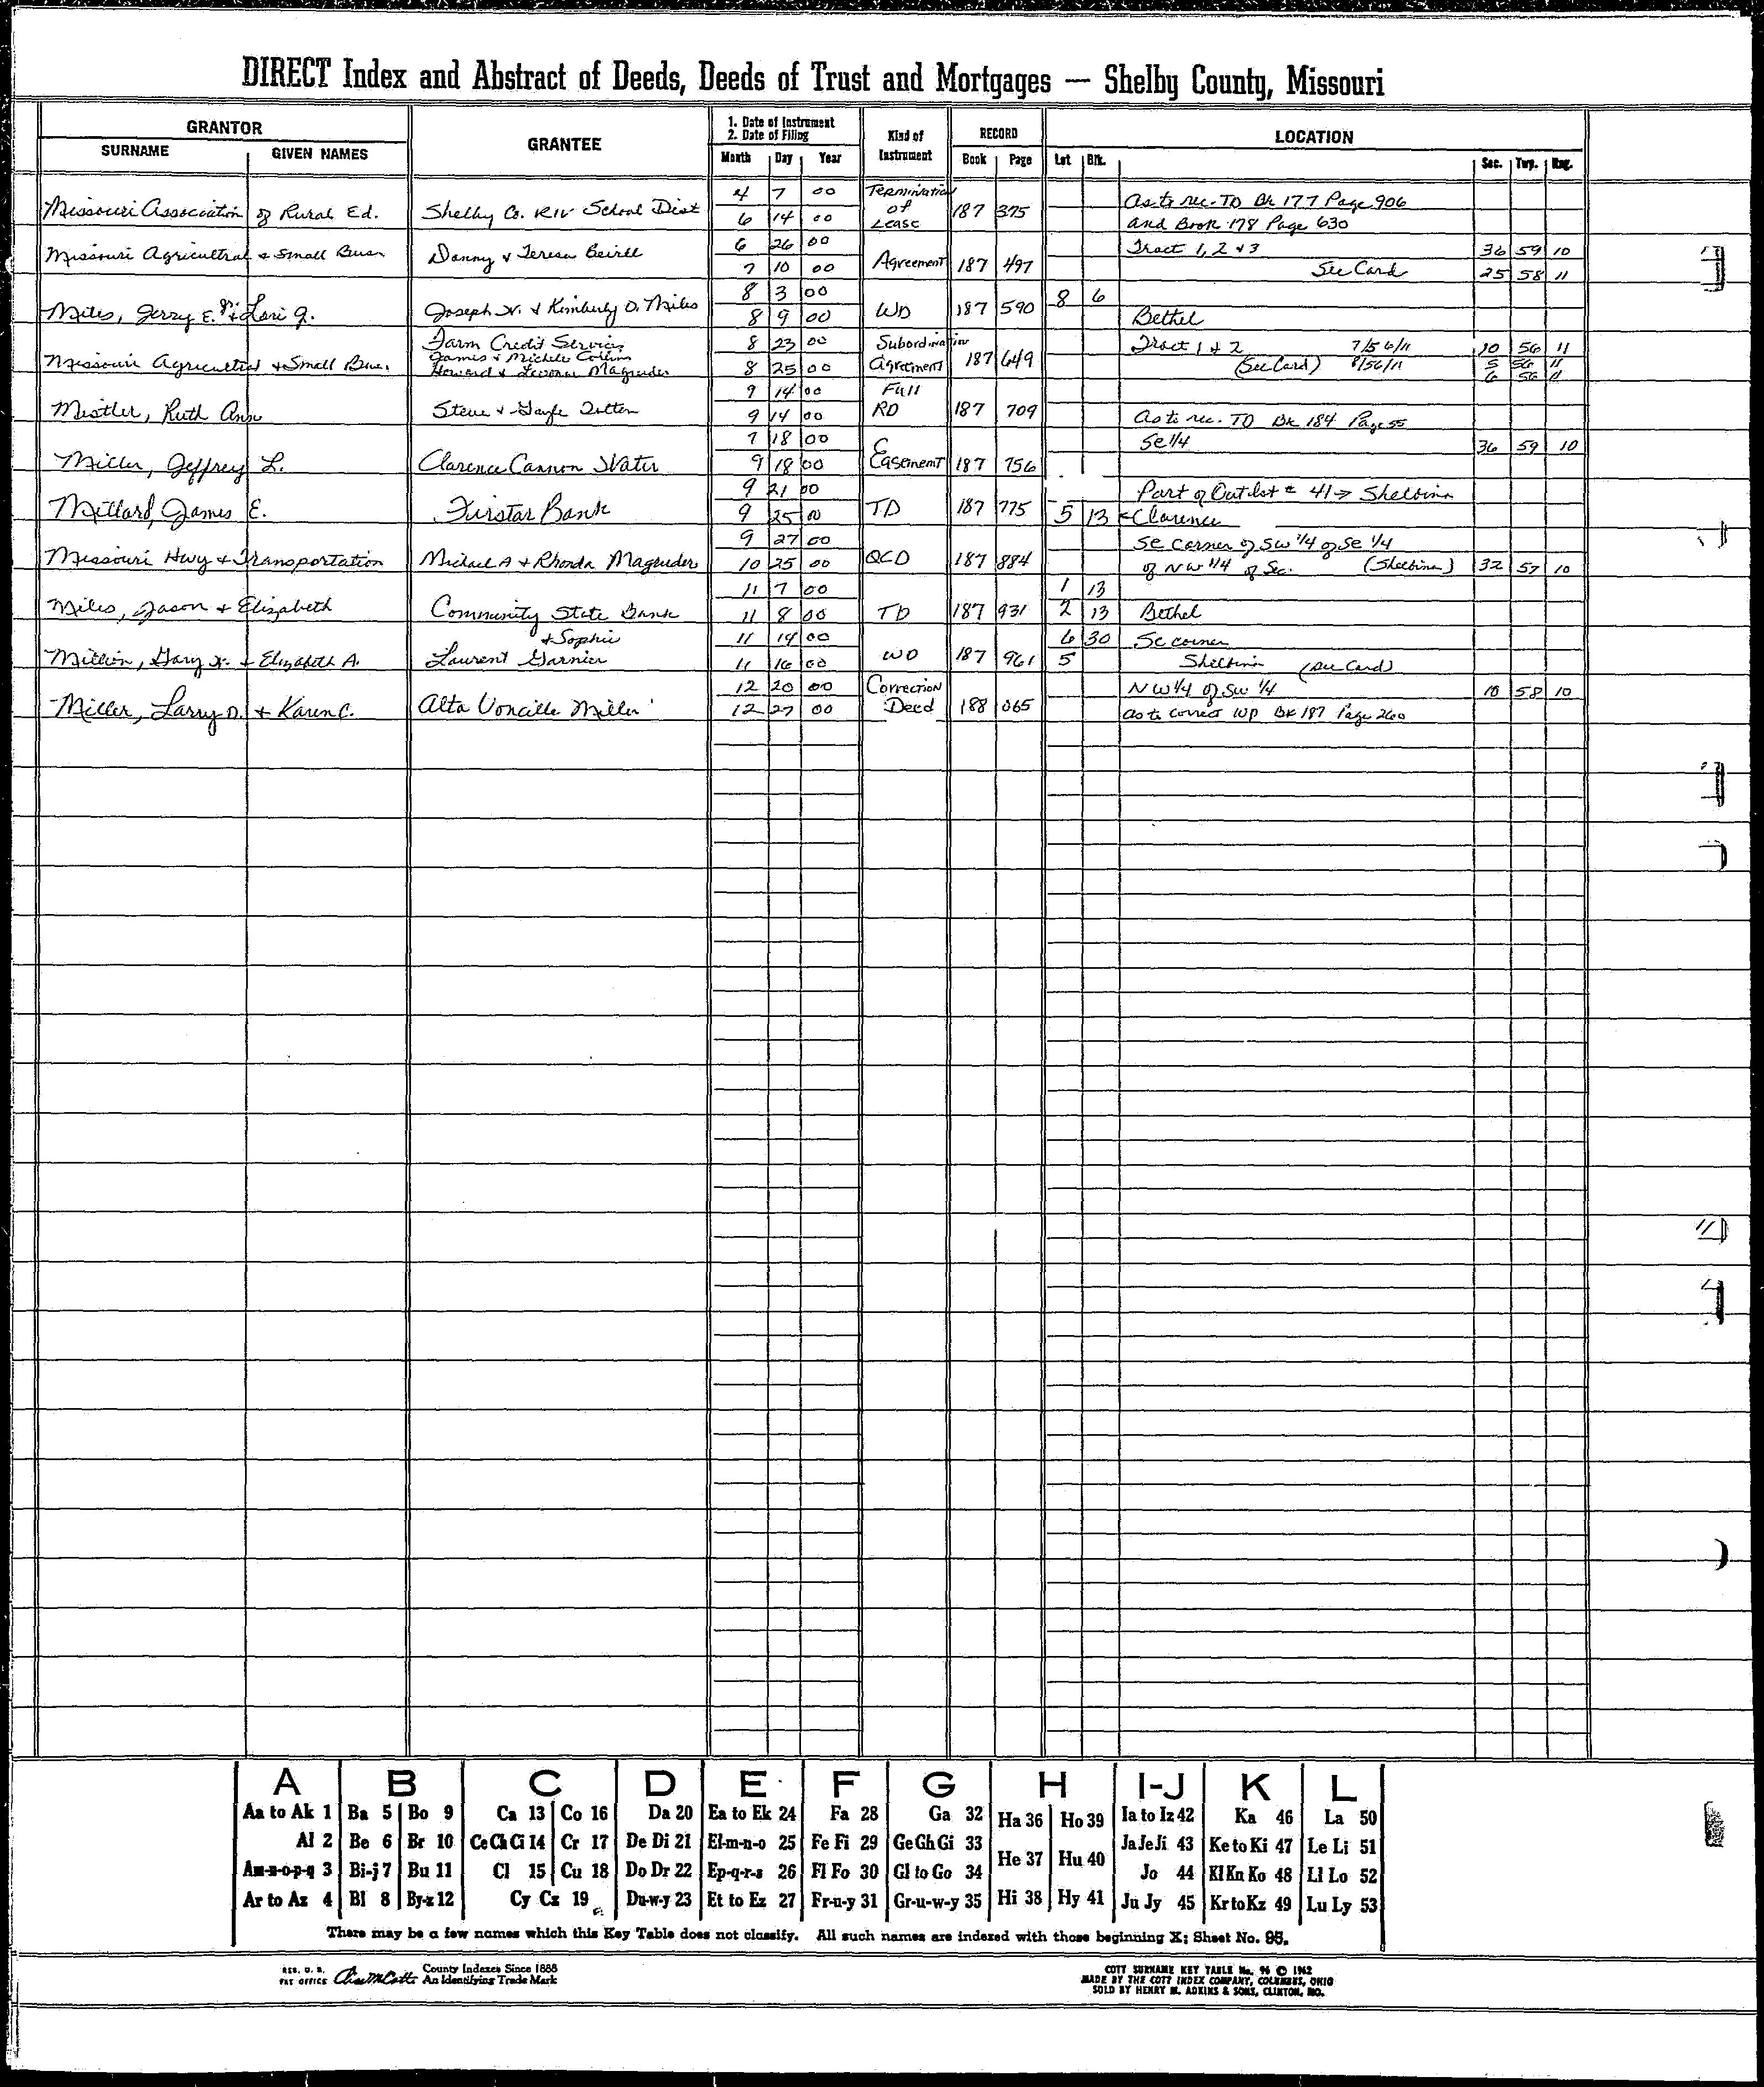 DIRECT Index and Abstract of Deeds, Deeds of Trust and Mortgages — Shelby County, Missouri
GRANTOR
SURNAME GIVEN NAMES
GRANTEE
1. Date of Instrument
2. Date of Filing
Month Day Year
Kind of
Instrument
RECORD
Book Page
LOCATION
Lot Blk. Sec. Twp. Rng.
4 7 00 Termination As to rec. TD Bk 177 Page 906
Missouri Association of Rural Ed. Shelby Co. RIV School Dist of 187 375
6 14 00 Lease and Book 178 Page 630
6 26 00 Tract 1, 2 + 3 36 59 10
Missouri Agricultral + Small Busn Danny + Teresa Agreement 187 497
7 10 00 See Card 25 58 11
8 3 00 8 6
Miles, Jerry E. + Lori J. Joseph + Kimberly D. Miles WD 187 590
8 9 00 Bethel
Farm Credit Services 8 23 00 Subordination Tract 1 + 2 7/56/11 10 56 11
Missouri Agricultral + Small Bus. James + Michele Collins 187 649
Howard + Magruder 8 25 00 Agreement (See Card) 8/56/11 5 56 11
6 56 11
9 14 00 Full
Mistler, Ruth Ann Steve + Gayle RD 187 709
9 14 00 As to rec. TD Bk 184 Page 55
7 18 00 Se 1/4 36 59 10
Miller, Jeffrey L. Clarence Cannon Water 9 18 00 Easement 187 756
9 21 00 Part of Outlot # 41 → Shelbina
Millard, James E. Firstar Bank 9 25 00 TD 187 775 5 13 ← Clarence
9 27 00 Se corner of SW 1/4 of Se 1/4
Missouri Hwy + Transportation Michael A + Rhonda Magruder 10 25 00 QCD 187 884 of NW 1/4 of Sec. (Shelbina) 32 57 10
11 7 00 1 13
Miles, Jason + Elizabeth Community State Bank 11 8 00 TD 187 931 2 13 Bethel
+ Sophie 11 14 00 6 30 Se corner
Million, Gary + Elizabeth A. Laurent Garnier 11 16 00 WD 187 961 5 Shelbina (See Card)
12 20 00 Correction NW 1/4 of SW 1/4 10 58 10
Miller, Larry D. + Karen C. Alta Voncille Miller 12 27 00 Deed 188 065 As to correct WD Bk 187 Page 260
A B C D E F G H I-J K L
Aa to Ak 1 Ba 5 Bo 9 Ca 13 Co 16 Da 20 Ea to Ek 24 Fa 28 Ga 32 Ha 36 Ho 39 Ia to Iz 42 Ka 46 La 50
Al 2 Be 6 Br 10 Ce Ch Ci 14 Cr 17 De Di 21 El-m-n-o 25 Fe Fi 29 Ge Gh Gi 33 He 37 Hu 40 Ja Je Ji 43 Ke to Ki 47 Le Li 51
Am-n-o-p-q 3 Bi-j 7 Bu 11 Cl 15 Cu 18 Do Dr 22 Ep-q-r-s 26 Fl Fo 30 Gl to Go 34 Jo 44 Kl Kn Ko 48 Ll Lo 52
Ar to Az 4 Bl 8 By-z 12 Cy Cz 19 Du-w-y 23 Et to Ez 27 Fr-u-y 31 Gr-u-w-y 35 Hi 38 Hy 41 Ju Jy 45 Kr to Kz 49 Lu Ly 53
There may be a few names which this Key Table does not classify. All such names are indexed with those beginning X; Sheet No. 95.
REG. U. S.
PAT OFFICE
County Indexes Since 1888
An Identifying Trade Mark
COTT SURNAME KEY TABLE No. 96 © 1962
MADE BY THE COTT INDEX COMPANY, COLUMBUS, OHIO
SOLD BY HENRY M. ADKINS & SONS, CLINTON, MO.